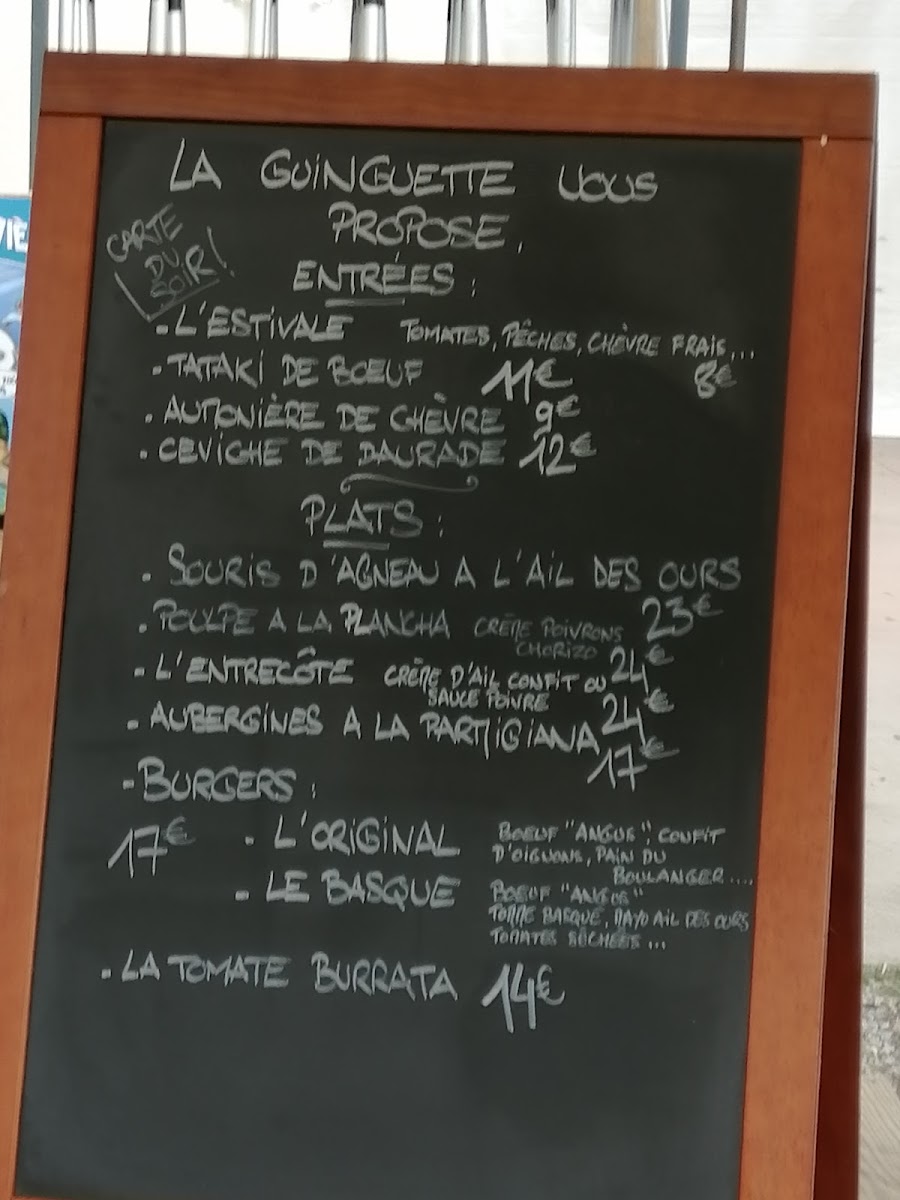 LA GUINGUETTE VOUS
PROPOSE,
CARTE
DU
SOIR!
ENTRÉES :
. L'ESTIVALE TOMATES, PÊCHES, CHÈVRE FRAIS... 8€
. TATAKI DE BOEUF 11€
. AUMONIÈRE DE CHÈVRE 9€
. CEVICHE DE DAURADE 12€
PLATS :
. SOURIS D'AGNEAU A L'AIL DES OURS 23€
. POULPE A LA PLANCHA CRÈME POIVRONS
CHORIZO 24€
- L'ENTRECÔTE CRÈME D'AIL CONFIT OU
SAUCE POIVRE 24€
- AUBERGINES A LA PARMIGIANA 17€
- BURGERS :
17€
. L'ORIGINAL BOEUF "ANGUS", CONFIT
D'OIGNONS, PAIN DU
BOULANGER....
- LE BASQUE BOEUF "ANGUS"
TOMME BASQUE, MAYO AIL DES OURS
TOMATES SÉCHÉES...
- LA TOMATE BURRATA 14€
VIÈ